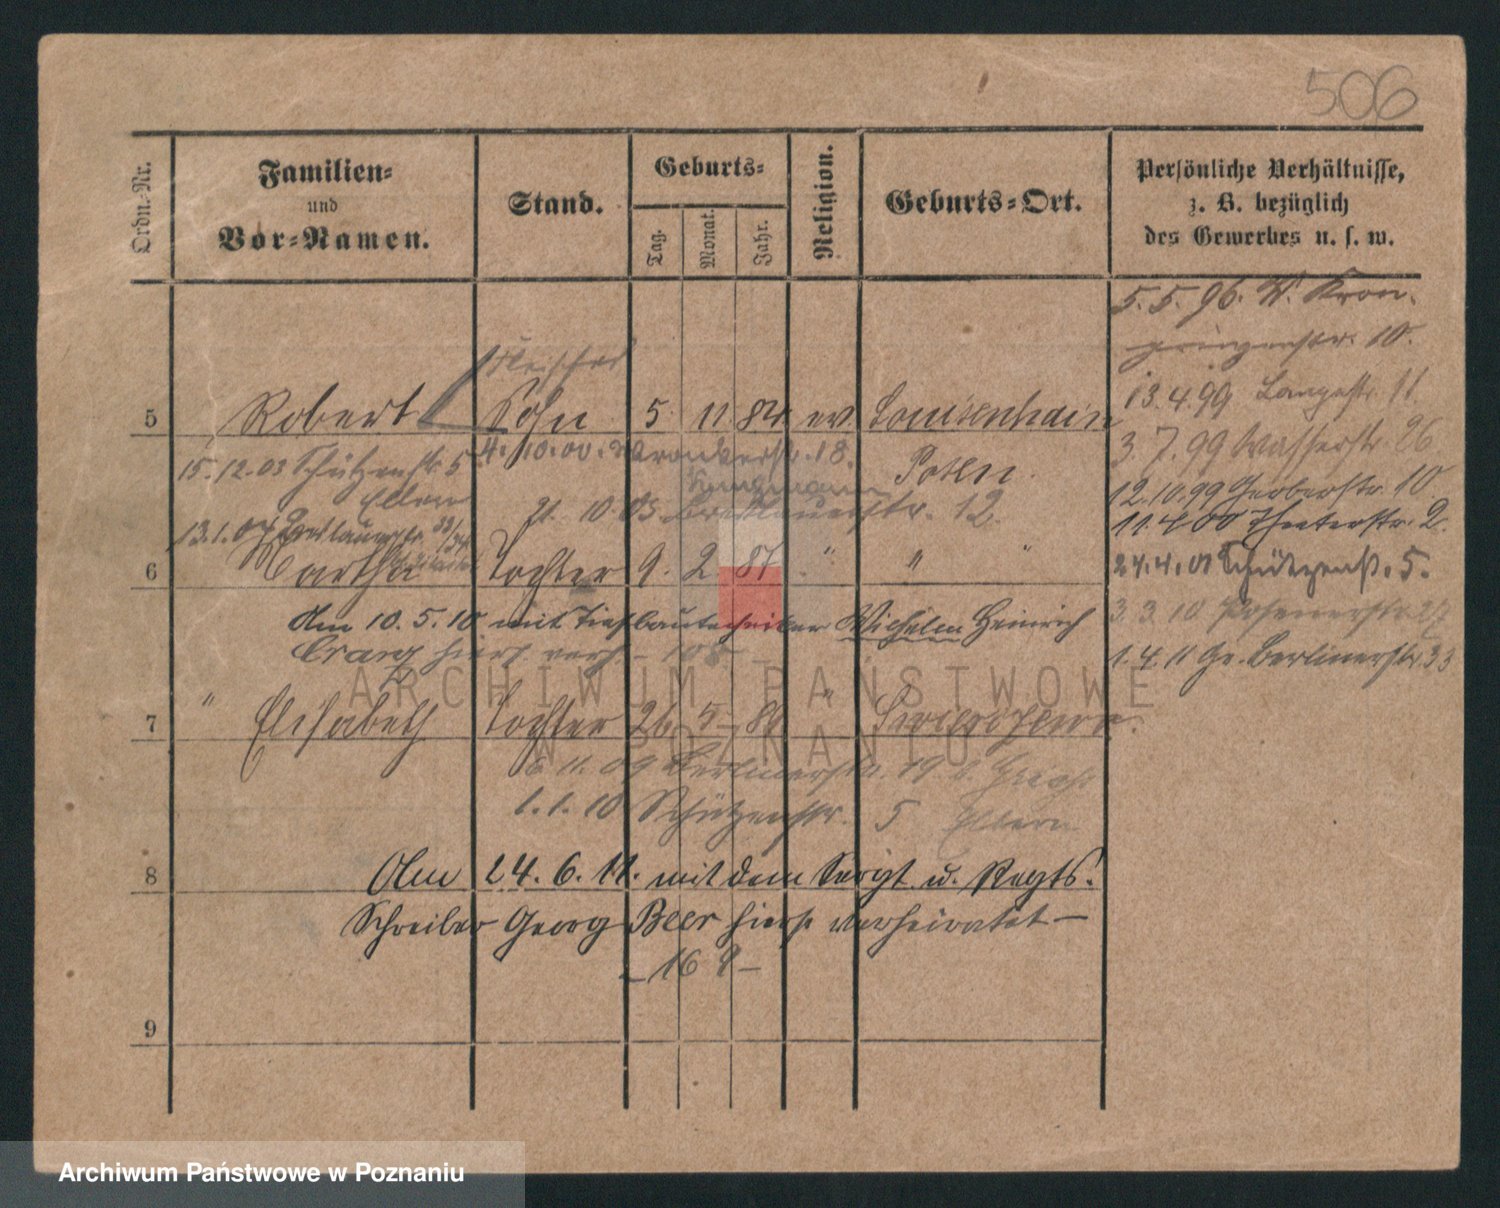 506
Ordn.-Nr.
Familien-
und
Vor-Namen.
Stand.
Geburts-
Tag.
Monat.
Jahr.
Religion.
Geburts-Ort.
Persönliche Verhältnisse,
z. B. bezüglich
des Gewerbes u. s. w.
5.5.96. W. Kron-
prinzenstr. 10.
13.4.99 Langestr. 11.
3.7.99 Wasserstr. 26
12.10.99 Gerberstr. 10
11.4.00 Theaterstr. 2.
24.4.01 Schützenstr. 5.
3.3.10 Posenerstr. 27
1.4.11 Gr. Berlinerstr. 33
5 Robert Sohn 5 11 84 ev. Louisenhain
4.10.00. Kronkerstr. 18.
15.12.03 Schützenstr. 5 Posen.
Eltern
21.10.05 Breslauerstr. 12.
13.1.07 Breslauerstr. 33/34
6 Martha Tochter 9. 2. 87 " " "
Am 10.5.10 mit Tiefbautechniker Wilhelm Heinrich
Cranz hier verh. – 108 –
7 " Elisabeth Tochter 26 5 89 "
6.11.09 Berlinerstr. 19 b.
1.1.10 Schützenstr. 5 Eltern
8 Am 24.6.11. mit dem Sergt. u. Regts.
Schreiber Georg Beer hierse verheiratet –
– 168 –
9
ARCHIWUM PAŃSTWOWE
W POZNANIU
Archiwum Państwowe w Poznaniu